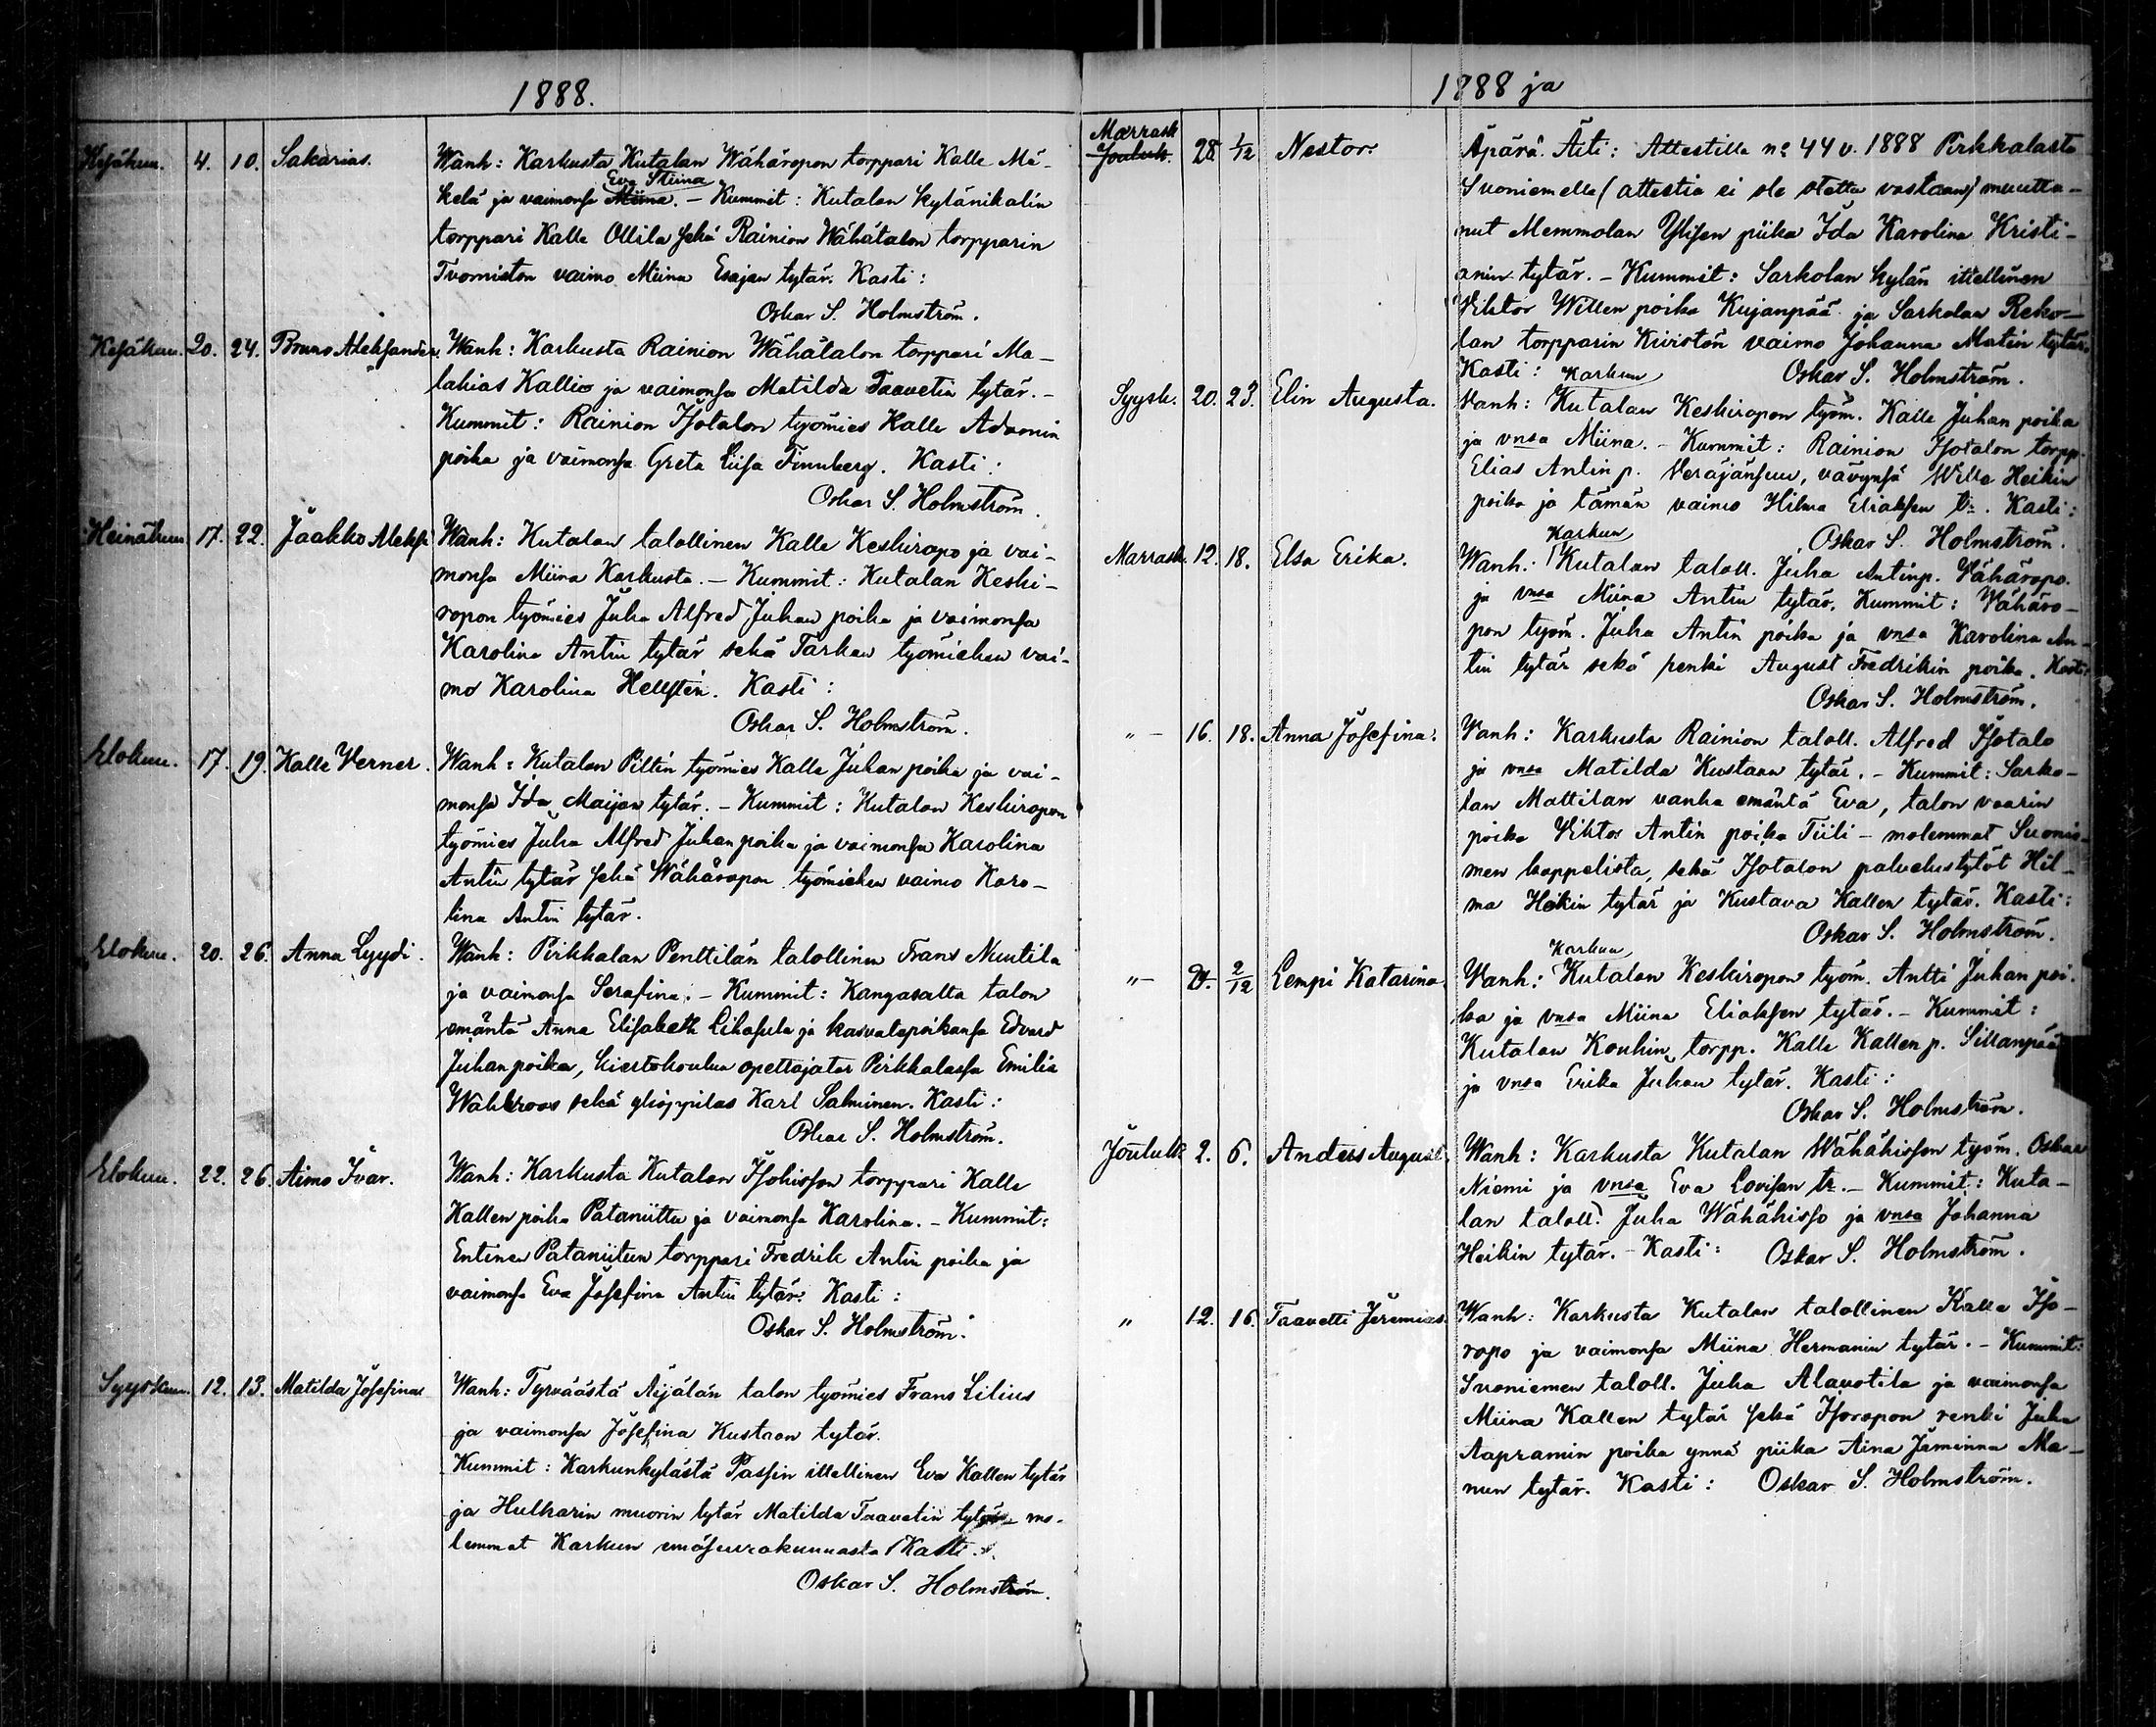 1888.
Kesäkuu. 4. 10. Sakarias. Wanh: Karkusta Kutalan Wähäropon torppari Kalle Mä-
Eva Stiina
kelä ja vaimonsa Miina. - Kummit: Kutalan kylänikalin
torppari Kalle Ollila sekä Rainion Wähätalon torpparin
Tuomiston vaimo Miina Esajan tytär. Kasti:
Oskar S. Holmström.
Kesäkuu. 20. 24. Bruno Aleksander. Wanh: Karkusta Rainion Wähätalon torppari Ma-
lakias Kallio ja vaimonsa Matilda Taavetin tytär. -
Kummit: Rainion Isotalon työmies Kalle Adamin
poika ja vaimonsa Greta Liisa Finnberg. Kasti:
Oskar S. Holmström.
Heinäkuu 17. 22. Jaakko Aleksi Wanh: Kutalan talollinen Kalle Keskiropo ja vai-
monsa Miina Karkusta. - Kummit: Kutalan Keski-
ropon työmies Juha Alfred Juhan poika ja vaimonsa
Karolina Antin tytär sekä Tarkan työmiehen vai-
mo Karolina Hellstén. Kasti:
Oskar S. Holmström.
Elokuu. 17. 19. Kalle Verner. Wanh: Kutalan Piltin työmies Kalle Juhan poika ja vai-
monsa Ida Maijan tytär. - Kummit: Kutalan Keskiropon
työmies Juha Alfred Juhan poika ja vaimonsa Karolina
Antin tytär sekä Wähäropon työmiehen vaimo Karo-
lina Antin tytär.
Elokuu. 20. 26. Anna Lyydi. Wanh: Pirkkalan Penttilän talollinen Frans Nuutila
ja vaimonsa Serafina. - Kummit: Kangasalta talon
emäntä Anna Elisabeth Lihasula ja kasvatepoikansa Edvard
Juhan poika, kiertokoulun opettajatar Pirkkalassa Emilia
Wahlroos sekä ylioppilas Karl Salminen. Kasti:
Oskar S. Holmström.
Elokuu. 22. 26. Aimo Ivar. Wanh: Karkusta Kutalan Isohisson torppari Kalle
Kallen poika Pataniittu ja vaimonsa Karolina. - Kummit:
Entinen Pataniitun torppari Fredrik Antin poika ja
vaimonsa Eva Josefina Antin tytär. Kasti:
Oskar S. Holmström.
Syyskuu. 12. 13. Matilda Josefina Wanh: Tyrväästä Äijälän talon työmies Frans Lilius
ja vaimonsa Josefina Kustaan tytär.
Kummit: Karkunkylästä Passin itellinen Eva Kallen tytär
ja Hulkarin muorin tytär Matilda Taavetin tytär - mo-
lemmat Karkun emäseurakunnasta. Kasti:
Oskar S. Holmström.
1888 ja
Marrask
Jouluk. 28. 1/12 Nestor. Äpärä. Äiti: Attestilla no 44 v. 1888 Pirkkalasta
Suoniemelle (attestia ei ole otettu vastaan) muutta-
nut Memmolan Ylisen piika Ida Karolina Kristi-
anin tytär. - Kummit: Sarkolan kylän itsellinen
Viktor Willen poika Kujanpää ja Sarkolan Reko-
lan torpparin Kiviston vaimo Johanna Matin tytär.
Kasti: Oskar S. Holmström.
Karkun
Syysk. 20. 23. Elin Augusta. Vanh: Kutalan Keskiropon työm. Kalle Juhan poika
ja vnsa Miina. - Kummit: Rainion Isotalon torpp.
Elias Antin p. Veräjänsuu, vävynsä Wille Heikin
poika ja tämän vaimo Hilma Eliaksen tr. Kasti:
Oskar S. Holmström.
Karkun
Marrask. 12. 18. Elsa Erika. Wanh: Kutalan taloll. Juha Antinp. Vähäropo
ja vnsa Miina Antin tytär. Kummit: Vähäro-
pon työm. Juha Antin poika ja vnsa Karolina An-
tin tytär sekä renki August Fredrikin poika. Kasti:
Oskar S. Holmström.
"- 16. 18. Anna Josefina. Vanh: Karkusta Rainion taloll. Alfred Isotalo
ja vnsa Matilda Kustaan tytär. - Kummit: Sarko-
lan Mattilan vanha emäntä Eva, talon vaarin
poika Viktor Antin poika Tiili - molemmat Suonie-
men kappelista, sekä Isotalon palvelustytöt Hil-
ma Heikin tytär ja Kustava Kallen tytär. Kasti:
Oskar S. Holmström.
Karkun
"- 24. 2/12 Lempi Katarina. Vanh: Kutalan Keskiropon työm. Antti Juhan poi-
ka ja vnsa Miina Eliaksen tytär. - Kummit:
Kutalan Kouhin torpp. Kalle Kallen p. Sillanpää
ja vnsa Erika Juhan tytär. Kasti:
Oskar S. Holmström.
Jouluk 2. 6. Anders August. Wanh: Karkusta Kutalan Wähähisson työm. Oskar
Niemi ja vnsa Eva Lovisan tr. - Kummit: Kuta-
lan taloll. Juha Wähähisso ja vnsa Johanna
Heikin tytär. - Kasti: Oskar S. Holmström.
" 12. 16. Taavetti Jeremias. Wanh: Karkusta Kutalan talollinen Kalle Iso-
ropo ja vaimonsa Miina Hermanin tytär. - Kummit:
Suoniemen taloll. Juha Alauotila ja vaimonsa
Miina Kallen tytär sekä Isoropon renki Juha
Aapramin poika ynnä piika Aina Jäminna Ma-
nun tytär. Kasti: Oskar S. Holmström.